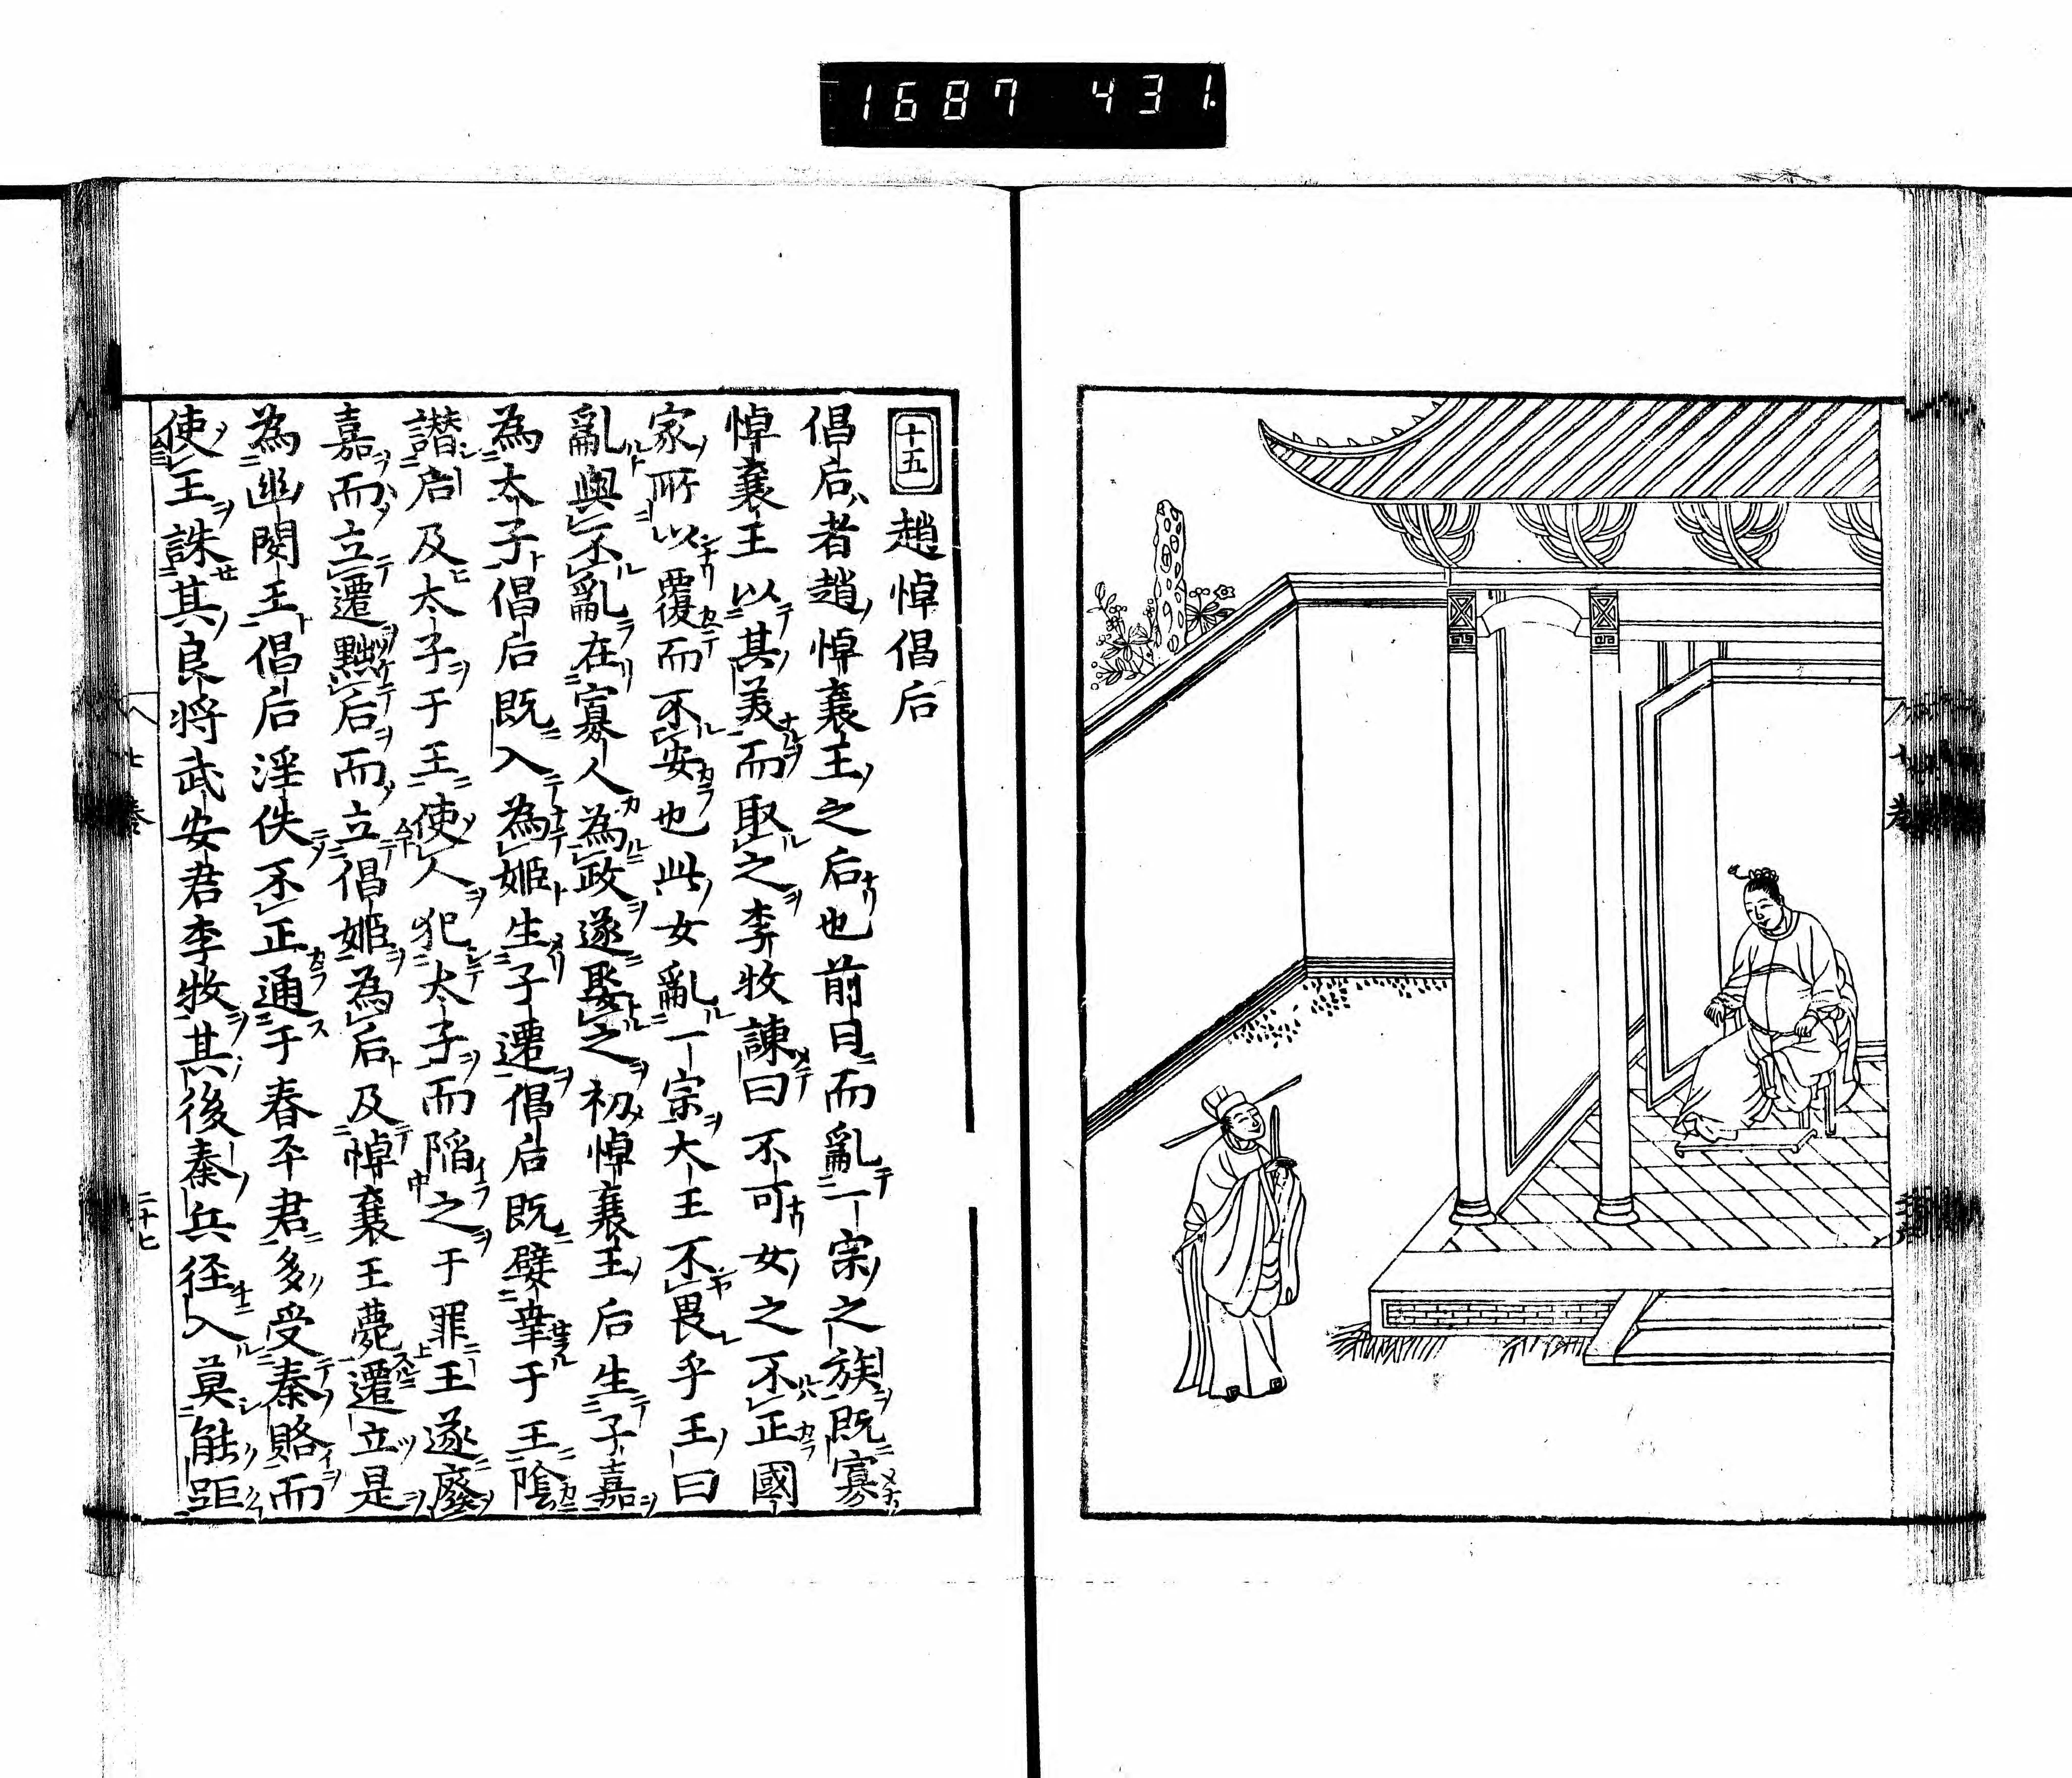 1687 431.
十五 趙悼倡后
倡后者趙悼襄王之后也前日而亂一宗之族既寡
悼襄王以其美而取之李牧諫曰不可女之不正國
家所以覆而不安也此女亂一宗大王不畏乎王曰
亂與不亂在寡人為政遂娶之初悼襄王后生子嘉
為太子倡后既入為姬生子遷倡后既嬖幸于王陰
譖后及太子于王使人犯太子而陷之于罪王遂廢
嘉而立遷黜后而立倡姬為后及悼襄王薨遷立是
為幽閔王倡后淫佚不正通于春平君多受秦賂而
使王誅其良将武安君李牧其後秦兵径入莫能距
二十七